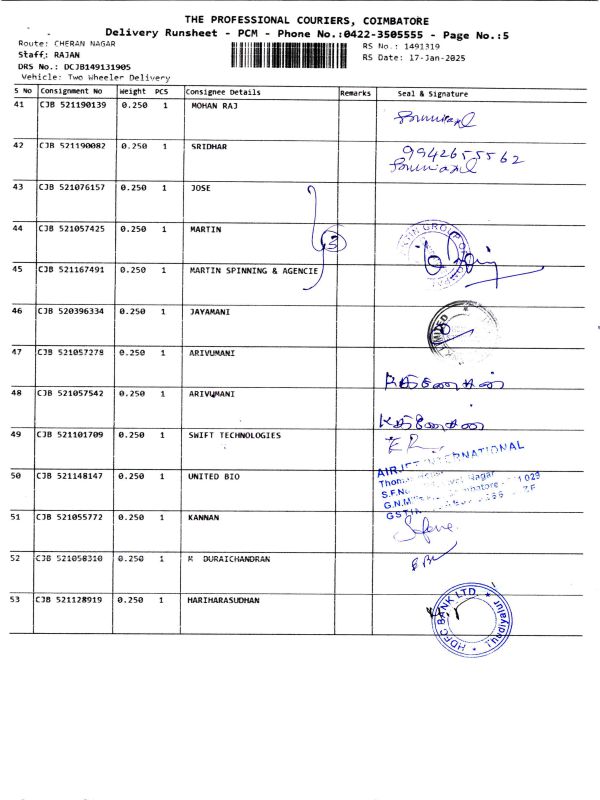 THE PROFESSIONAL COURIERS, COIMBATORE
Delivery Runsheet - PCM - Phone No.:0422-3505555 - Page No.:5
Route: CHERAN NAGAR
RS No.: 1491319
Staff: RAJAN
RS Date: 17-Jan-2025
DRS No.: DCJB149131905
Vehicle: Two Wheeler Delivery
S No Consignment No Weight PCS Consignee Details Remarks Seal & Signature
41 CJB 521190139 0.250 1 MOHAN RAJ
42 CJB 521190082 0.250 1 SRIDHAR 9942655562
43 CJB 521076157 0.250 1 JOSE
44 CJB 521057425 0.250 1 MARTIN 3
45 CJB 521167491 0.250 1 MARTIN SPINNING & AGENCIE
46 CJB 520396334 0.250 1 JAYAMANI
47 CJB 521057278 0.250 1 ARIVUMANI
48 CJB 521057542 0.250 1 ARIVUMANI
49 CJB 521101709 0.250 1 SWIFT TECHNOLOGIES
AIRJET INTERNATIONAL
50 CJB 521148147 0.250 1 UNITED BIO
51 CJB 521055772 0.250 1 KANNAN
52 CJB 521058310 0.250 1 M DURAICHANDRAN
53 CJB 521128919 0.250 1 HARIHARASUDHAN
HDFC BANK LTD. * Thudiyalur *